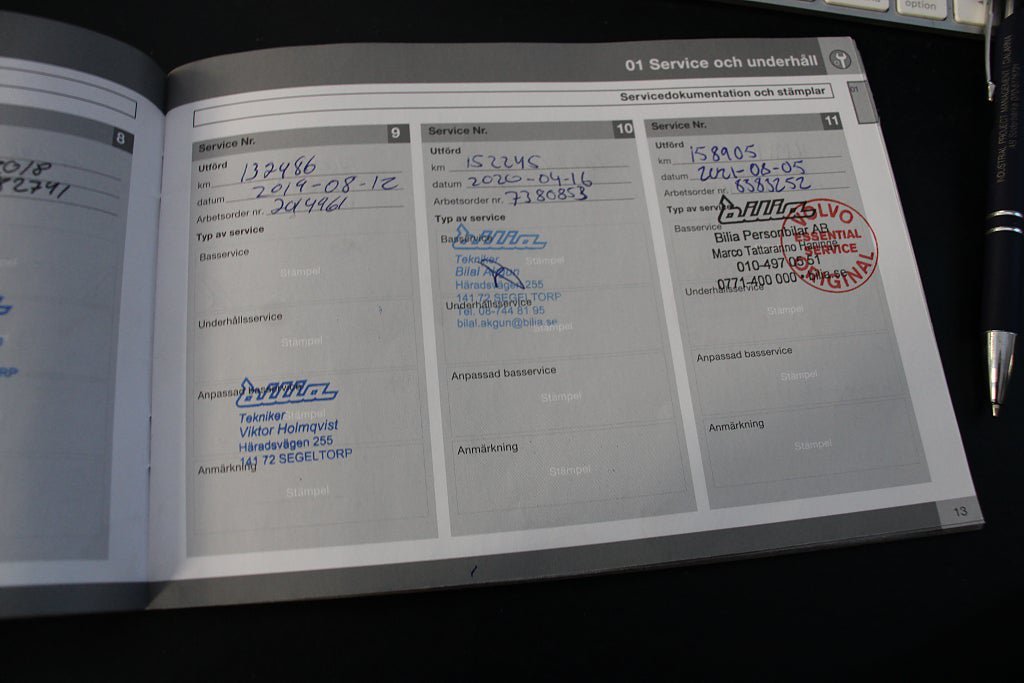 option
01 Service och underhåll
Servicedokumentation och stämplar
01
8
2018
82741
Service Nr. 9
Utförd
km 132486
datum 2019-08-12
Arbetsorder nr. 2014961
Typ av service
Basservice
Stämpel
Underhållsservice
Stämpel
Anpassad basservice
bilia
Stämpel
Tekniker
Viktor Holmqvist
Häradsvägen 255
141 72 SEGELTORP
Anmärkning
Stämpel
Service Nr. 10
Utförd
km 152245
datum 2020-04-16
Arbetsorder nr. 7380853
Typ av service
Basservice
bilia
Stämpel
Tekniker
Bilal Akgun
Häradsvägen 255
141 72 SEGELTORP
Underhållsservice
Tel. 08-744 81 95
bilal.akgun@bilia.se
Stämpel
Anpassad basservice
Stämpel
Anmärkning
Stämpel
Service Nr. 11
Utförd
km 158905
datum 2021-08-05
Arbetsorder nr. 8383252
Typ av service
bilia
Basservice
Bilia Personbilar AB
Marco Tattaranno Haninge
010-497 05 51
0771-400 000 • bilia.se
VOLVO
ESSENTIAL
SERVICE
ORIGINAL
Underhållsservice
Stämpel
Anpassad basservice
Stämpel
Anmärkning
Stämpel
13
RP
INDUSTRIAL PROJECT MANAGEMENT I DALARNA